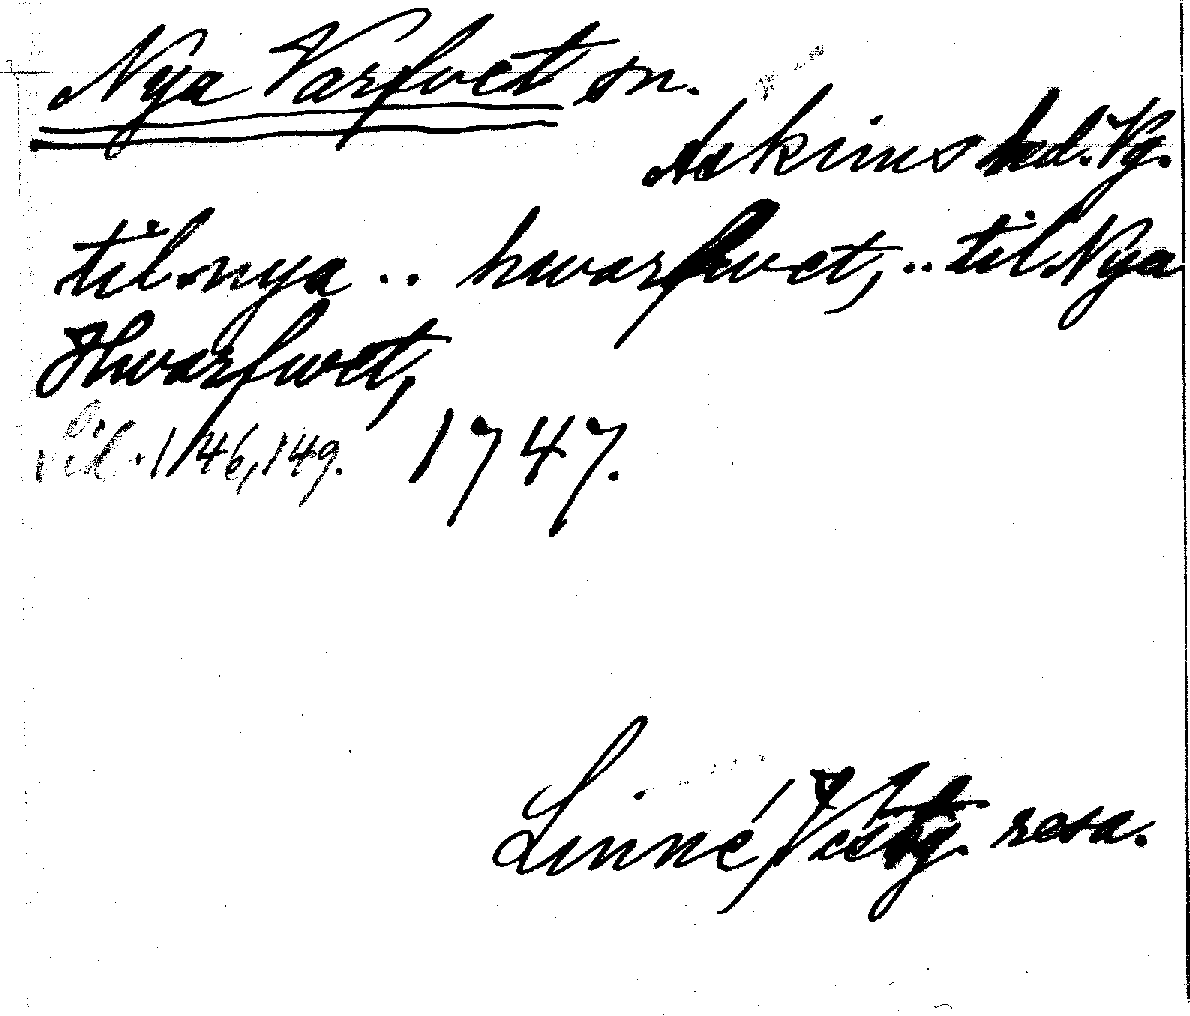 Nya Varfvet sn.
Askims hd. Vg.
til nya .. hwarfwet, .. til Nya
Hwarfwet,
Sid. 146, 149. 1747.
Linné, Västg. resa.